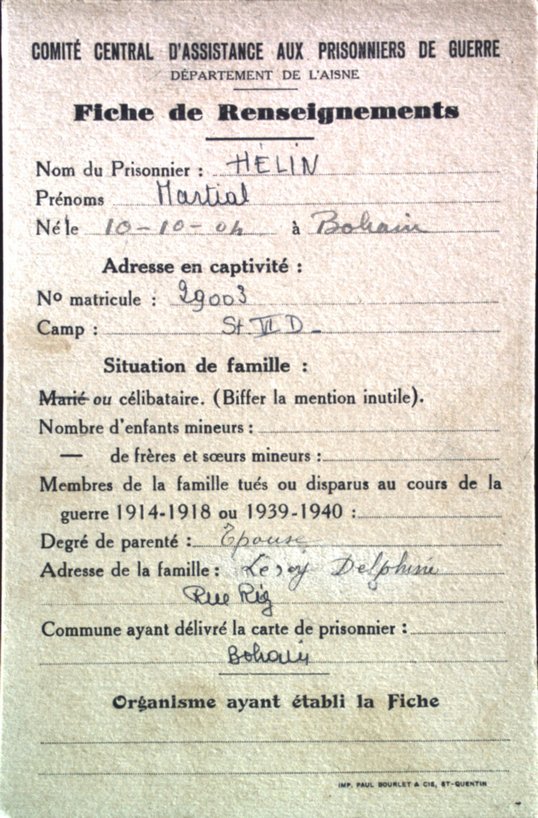 COMITÉ CENTRAL D'ASSISTANCE AUX PRISONNIERS DE GUERRE
DÉPARTEMENT DE L'AISNE
Fiche de Renseignements
Nom du Prisonnier : HÉLIN
Prénoms Martial
Né le 10-10-04 à Bohain
Adresse en captivité :
No matricule : 29003
Camp : St VI D
Situation de famille :
Marié ou célibataire. (Biffer la mention inutile).
Nombre d'enfants mineurs :
— de frères et sœurs mineurs :
Membres de la famille tués ou disparus au cours de la
guerre 1914-1918 ou 1939-1940 :
Degré de parenté : Épouse
Adresse de la famille : Leroy Delphine
Rue Rig
Commune ayant délivré la carte de prisonnier :
Bohain
Organisme ayant établi la Fiche
IMP. PAUL BOURLET & CIE, ST-QUENTIN